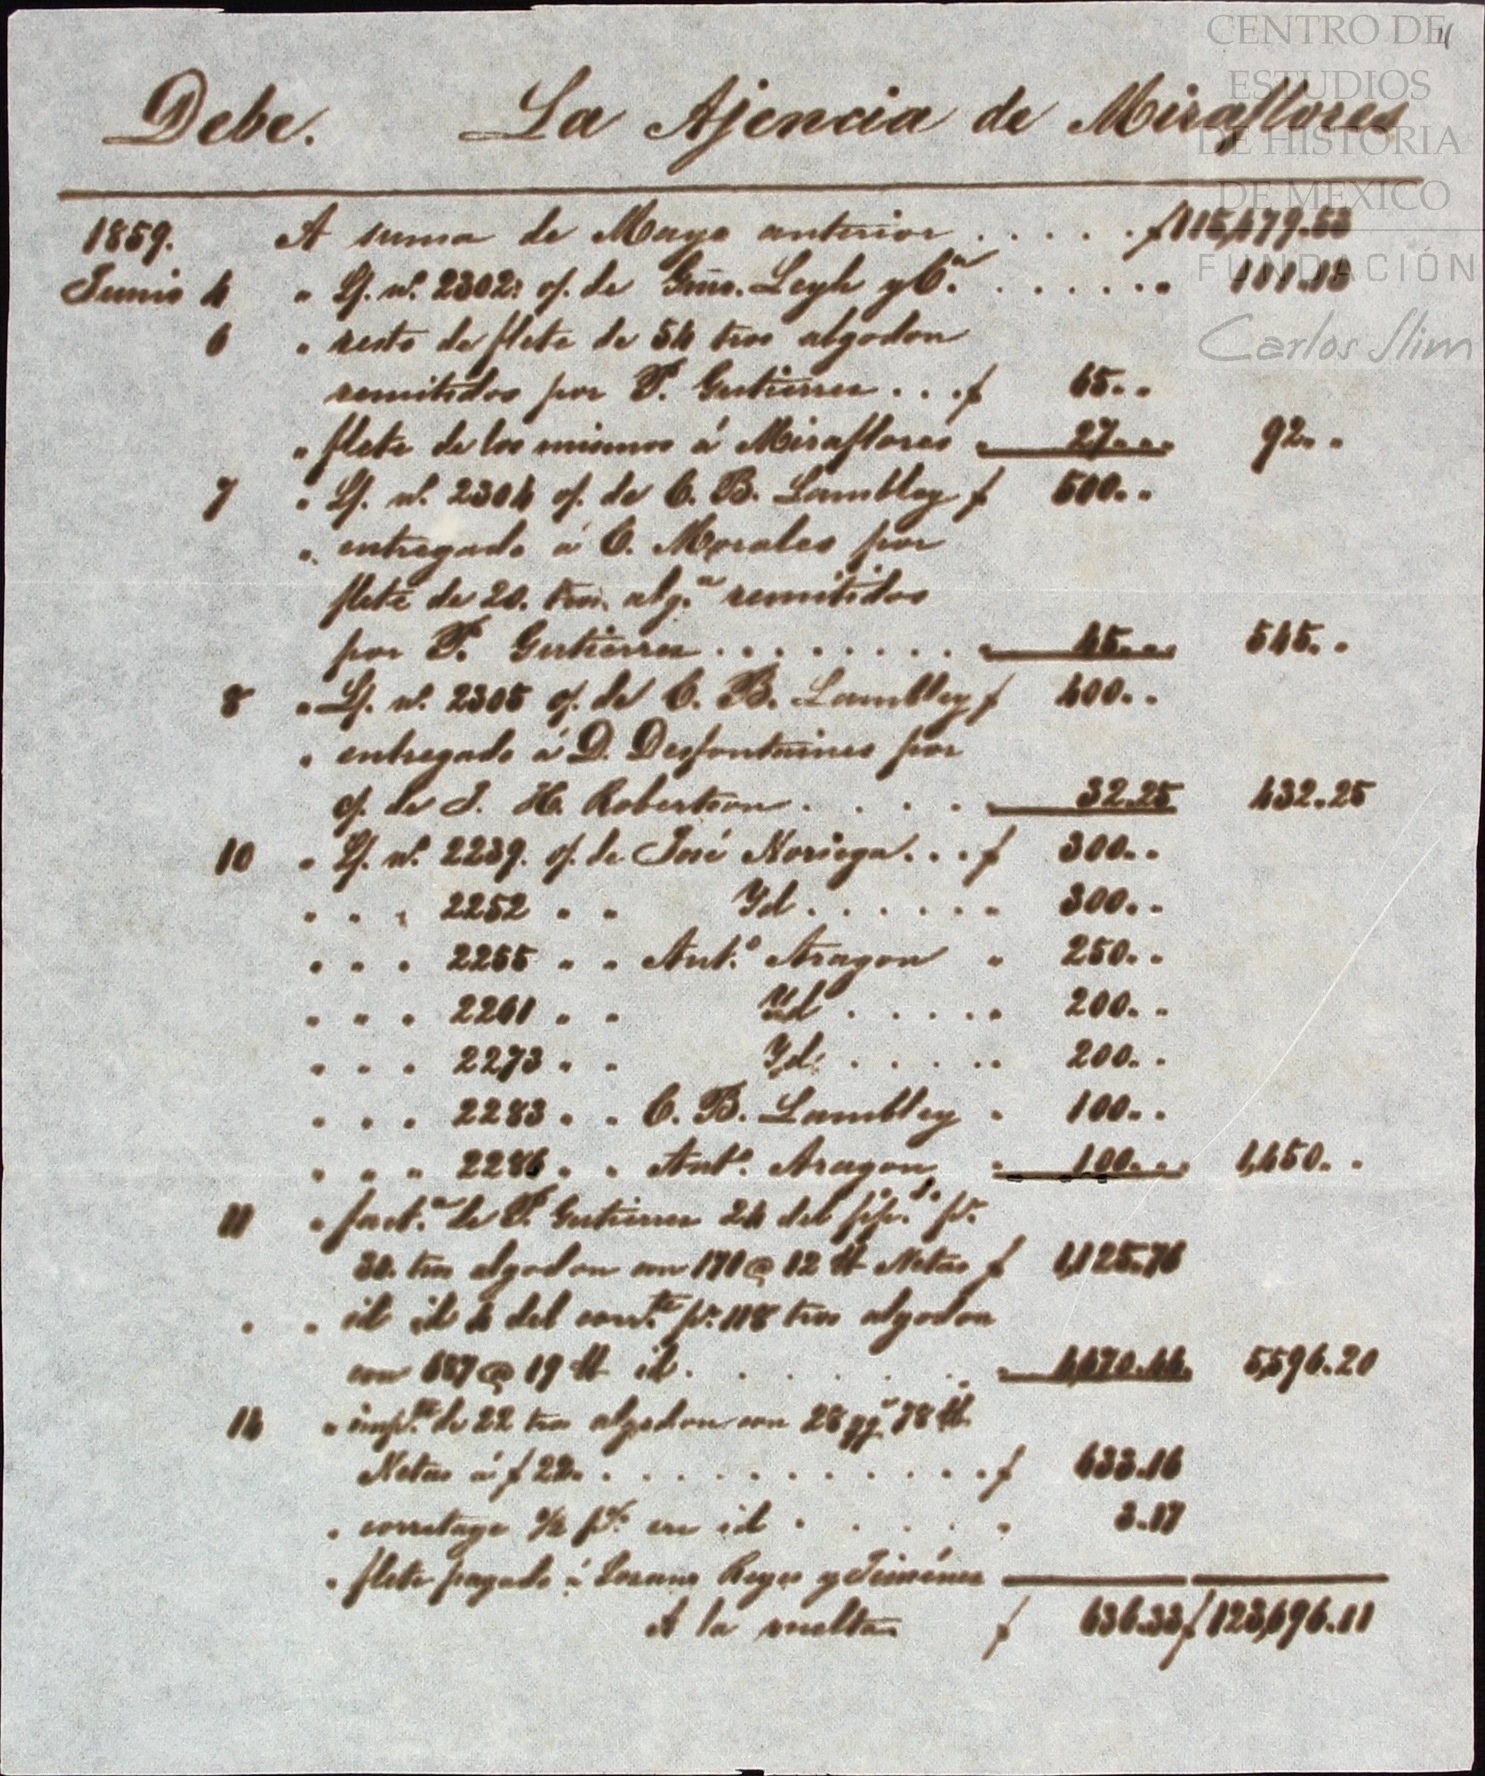 CENTRO DE
ESTUDIOS
DE HISTORIA
DE MEXICO
FUNDACIÓN
Carlos Slim
Debe. La Ajencia de Miraflores
1859. A suma de Mayo anterior . . . . . $115,479.53
Junio 4 " Lf. nº. 2302: of. de Gmo. Leyh y Cª. . . . . . . "
6 " resto de flete de 54 tros algodon
remitidos por P. Gutierrez . . . $ 65. "
" flete de los mismos á Miraflores " 27. " 92. "
7 " Lf. nº. 2304 of. de C. B. Lambley $ 500. "
" entregado á C. Morales por
flete de 20. tros. alg.ⁿ remitidos
por P. Gutierrez . . . . . . . . " 45. " 545. "
8 " Lf. nº. 2305 of. de C. B. Lambley $ 400. "
" entregado á D. Desfontaines por
of. de J. H. Robertson . . . . " 32.25 432.25
10 " Lf. nº. 2239. of. de José Noriega. . . $ 300. "
" " " 2252 " " Yd . . . . . . " 300. "
" " " 2255 " " Ant.º Aragon " 250. "
" " " 2261 " " Yd . . . . . " 200. "
" " " 2273 " " Yd. . . . . . " 200. "
" " " 2283 " " C. B. Lambley " 100. "
" " " 2286 " " Ant.º Aragon " 100. " 1,450. "
11 " fact.ª de P. Gutierrez 24 del pp.do pr.
30. tros algodon con 171 @ 12 ℔ Netas $ 1,125.76
" " id id 4 del corr.te pr. 118 tros algodon
con 687 @ 19 ℔ id. . . . . . . . " 4,470.44. 5,596.20
14 " imp.te de 22 tros algodon con 28 qq.ˢ 78 ℔
Netas á $ 22. . . . . . . . . . . . . $ 633.16
" corretage ½ p% en id . . . . . " 3.17
" flete pagado á Lozano Reyes y Jiménez
A la vuelta $ 636.33 $ 123,696.11